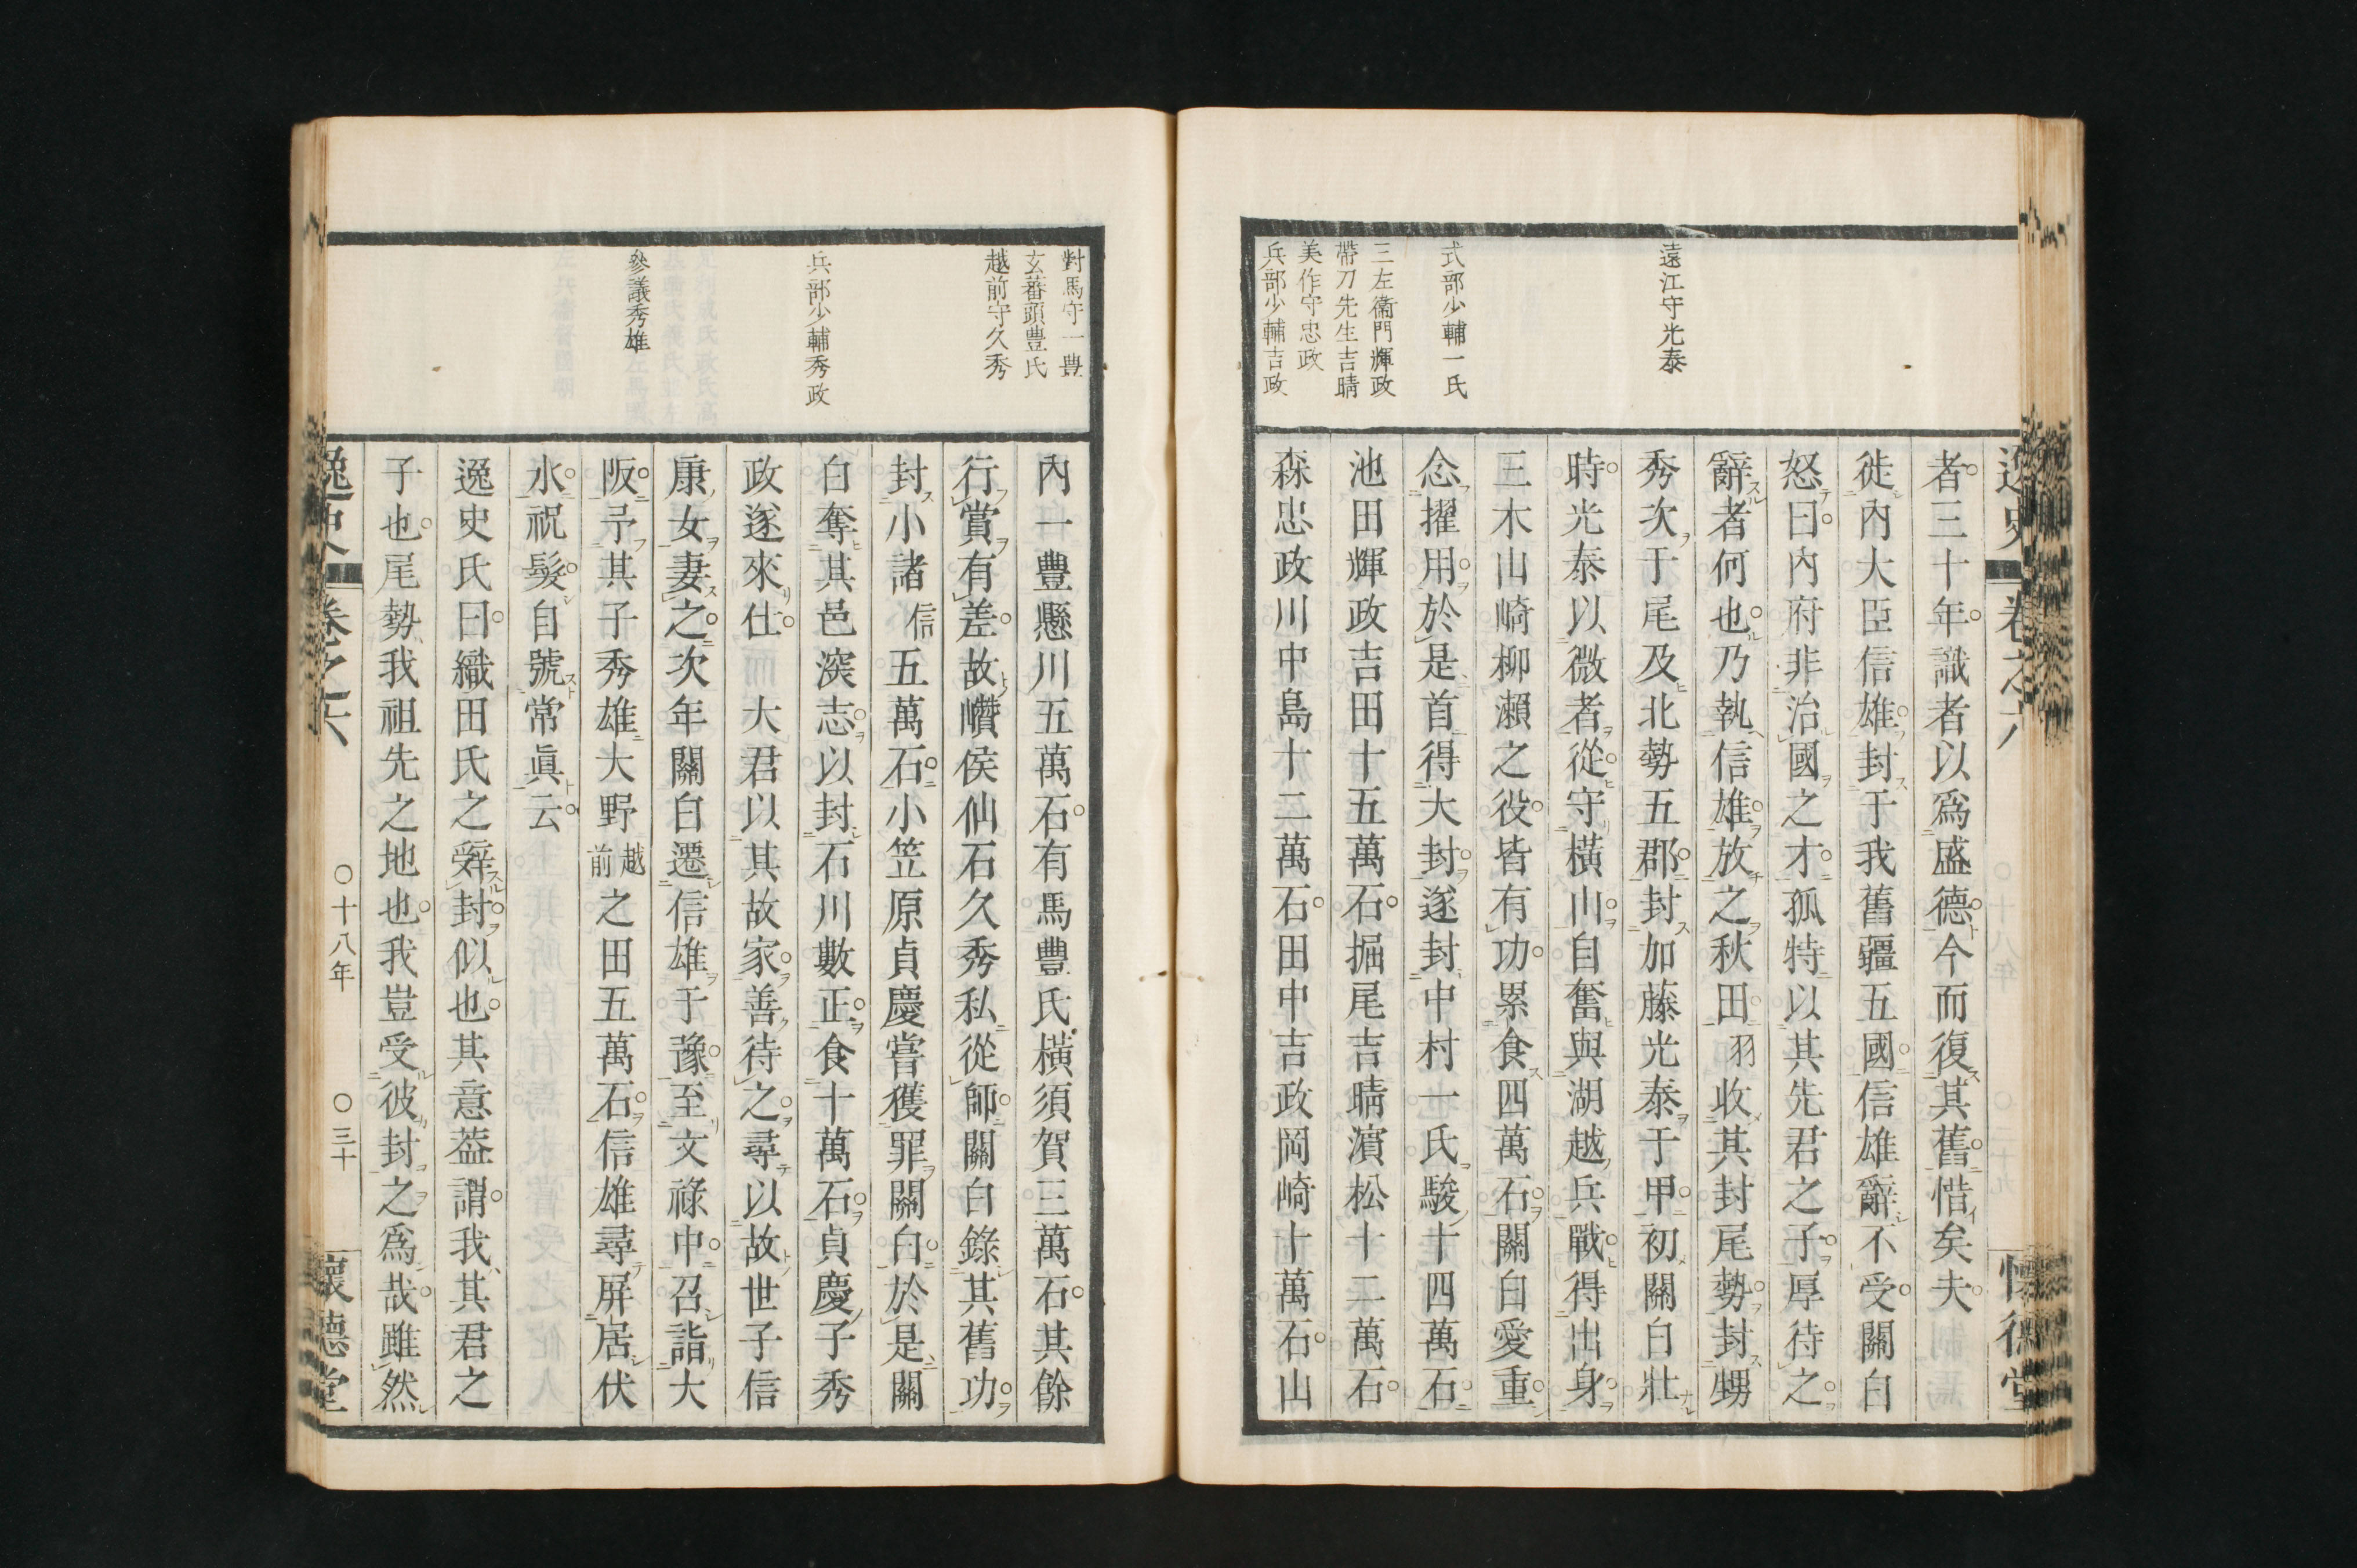 遠江守光泰
式部少輔一氏
三左衞門輝政
帶刀先生吉晴
美作守忠政
兵部少輔吉政
者三十年識者以爲盛德今而復其舊惜矣夫
徙內大臣信雄封于我舊疆五國信雄辭不受關白
怒曰內府非治國之才孤特以其先君之子厚待之
辭者何也乃執信雄放之秋田羽收其封尾勢封甥
秀次于尾及北勢五郡封加藤光泰于甲初關白壯
時光泰以微者從守橫山自奮與湖越兵戰得出身
三木山崎柳瀨之役皆有功累食四萬石關白愛重
念擢用於是首得大封遂封中村一氏駿十四萬石
池田輝政吉田十五萬石掘尾吉晴濱松十二萬石
森忠政川中島十二萬石田中吉政岡崎十萬石山
對馬守一豊
玄蕃頭豊氏
越前守久秀
兵部少輔秀政
參議秀雄
內一豊懸川五萬石有馬豊氏橫須賀三萬石其餘
行賞有差故巑侯仙石久秀私從師關白錄其舊功
封小諸信五萬石小笠原貞慶嘗獲罪關白於是關
白奪其邑深志以封石川數正食十萬石貞慶子秀
政遂來仕大君以其故家善待之尋以故世子信
康女妻之次年關白遷信雄于豫至文祿中召詣大
阪予其子秀雄大野越前之田五萬石信雄尋屏居伏
水祝髮自號常眞云
逸史氏曰織田氏之辭封似也其意葢謂我其君之
子也尾勢我祖先之地也我豈受彼封之爲哉雖然
逸史 卷之六 〇十八年 〇三十 懷德堂